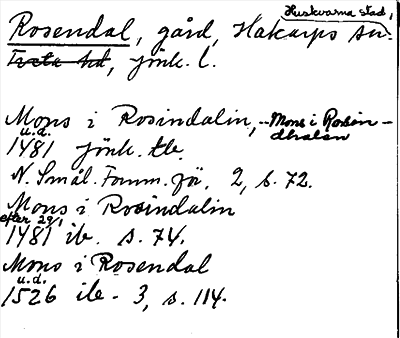 Huskvarna stad,
Rosendal, gård, Hakarps sn.
Tveta hd, jönk. l.
Mons i Rosindalin, -- Mons i Rosin-
dhalan
u.d.
1481 jönk. tb.
N. Smål. Fornm. för. 2, s. 72.
Mons i Rosindalin
efter 29/1
1481 ib. s. 74.
Mons i Rosendal
u.d.
1526 ib. 3, s. 114.